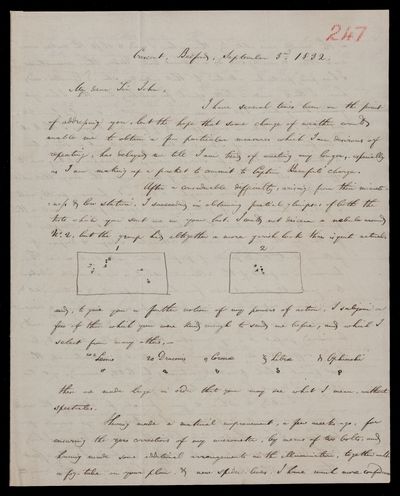 247
Crescent, Bedford, September 3rd 1832.
My dear Sir John,
I have several times been on the point
of addressing you, but the hope that some change of weather would
enable me to obtain a few particular measures which I am desirous of
repeating, has delayed me till I am tired of waiting any longer, especially
as I am making up a packet to commit to Captn Beaufort's charge.
After a considerable difficulty, arising from their minute-
-ness & low station, I succeeded in obtaining partial glimpses of both the
bits which you sent me in your last. I could not discern a nebula around
No. 2, but the group had altogether a more
1 2
and, to give you a further notion of my powers of action, I subjoin a
few of those which you were kind enough to send me before, and which I
select from many others,—
Leonis 20 Draconis η Coronæ ξ Libræ λ Ophiuchi
these are made large in order that you may see what I mean, without
spectacles.
Having made a material improvement, a few weeks ago, for
ensuring the zero corrections of my micrometer, by means of two bolts, and
having made some additional arrangements in the illumination, together with
a fog-tube on your plan, & new spider lines, I have much more confidence